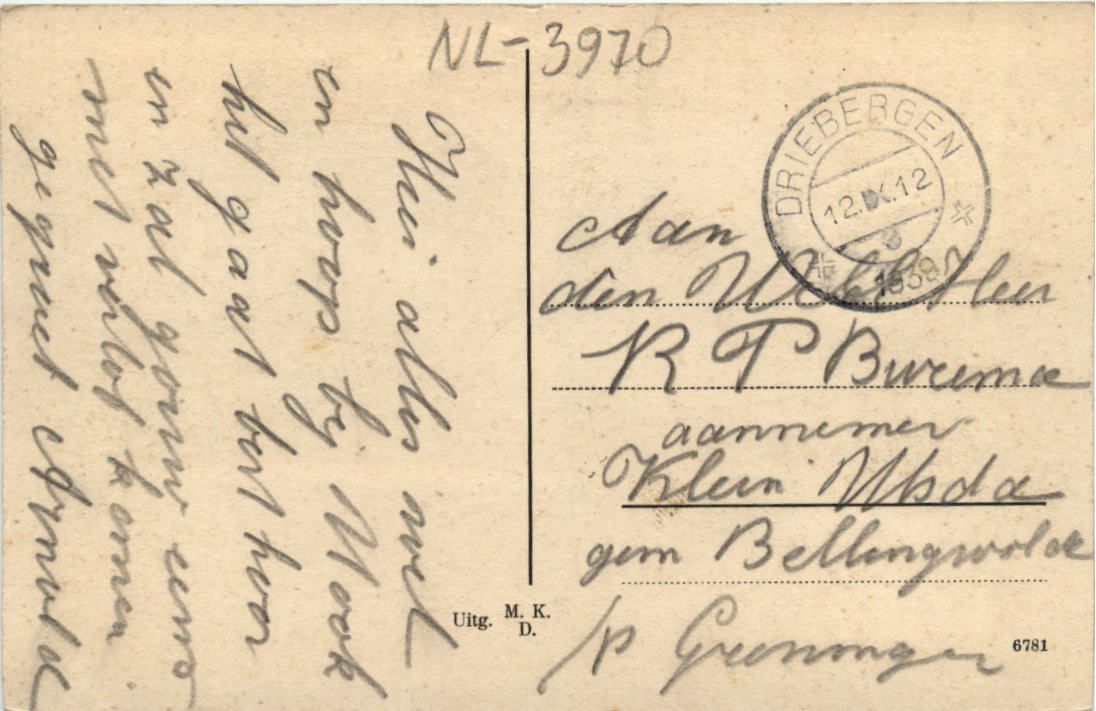 NL-3970
Hier alles wel
en hoop bij U ook
het gaat best hoor
en zal gouw eens
met verlof komen
gegroet Arnold
DRIEBERGEN
12.IX.12
1938
Aan
den Heer
R P Burema
aannemer
Klein Ulsda
gem Bellingwolde
p Groningen
Uitg. M. K.
D.
6781